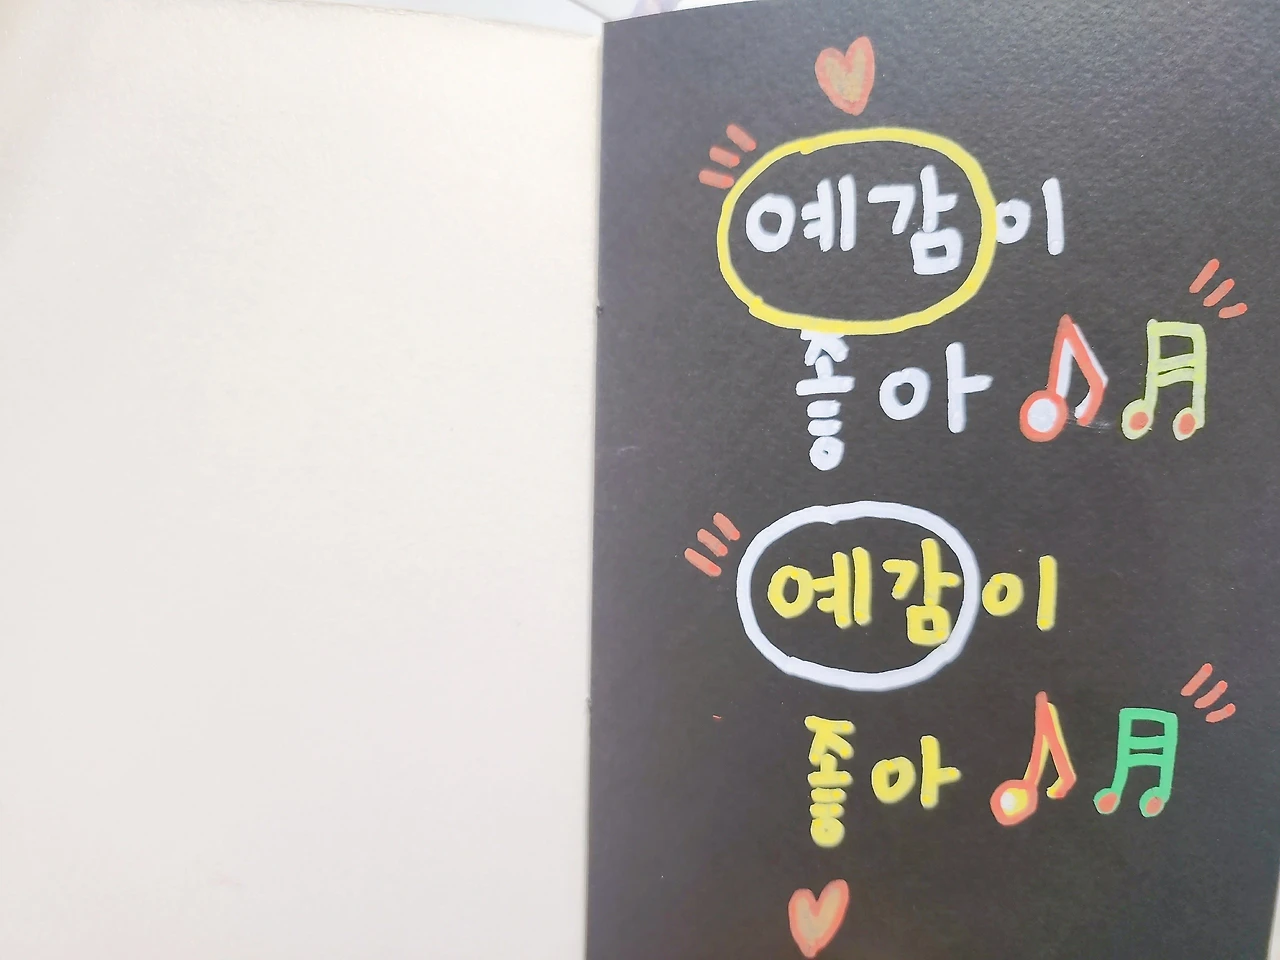 예감이
좋아
예감이
좋아